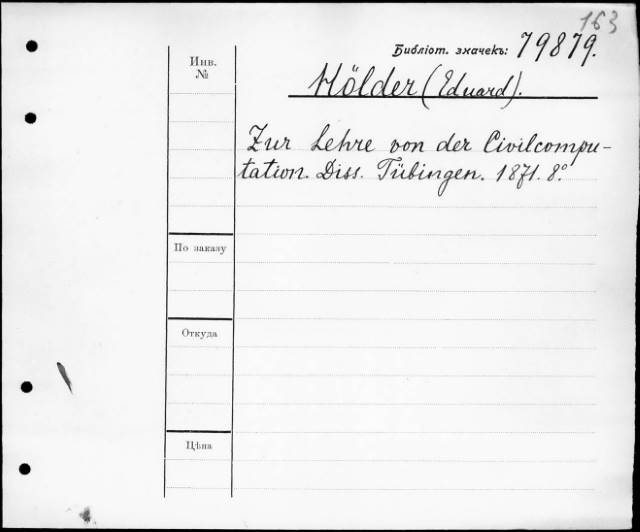 163
Библіот. значекъ: 79879.
Инв.
№
Hölder (Eduard).
Zur Lehre von der Civilcompu-
tation. Diss. Tübingen. 1871. 8°.
По заказу
Откуда
Цѣна